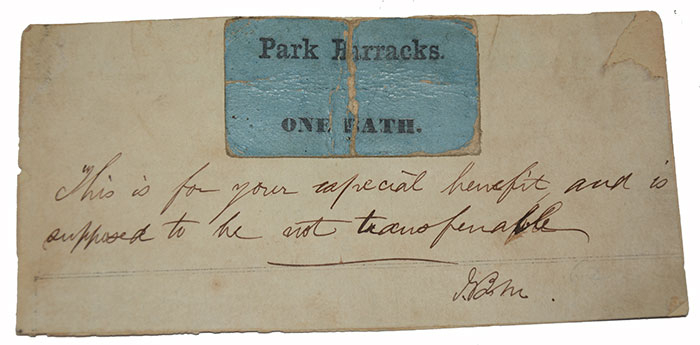 Park Barracks.
ONE BATH.
This is for your especial benefit, and is
supposed to be not transferable
J.B.M.